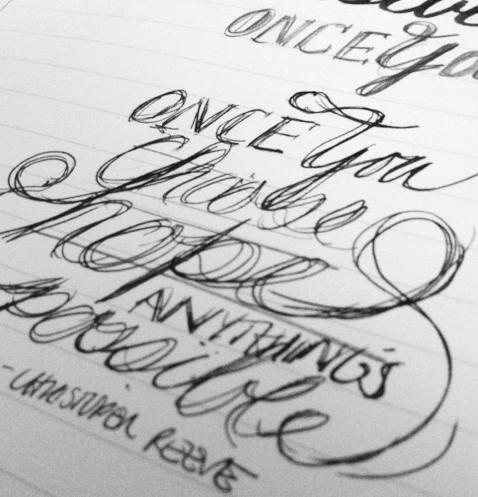 ONCE You
ONCE You
Choose
hope
ANYTHING'S
possible
- CHRISTOPHER REEVE